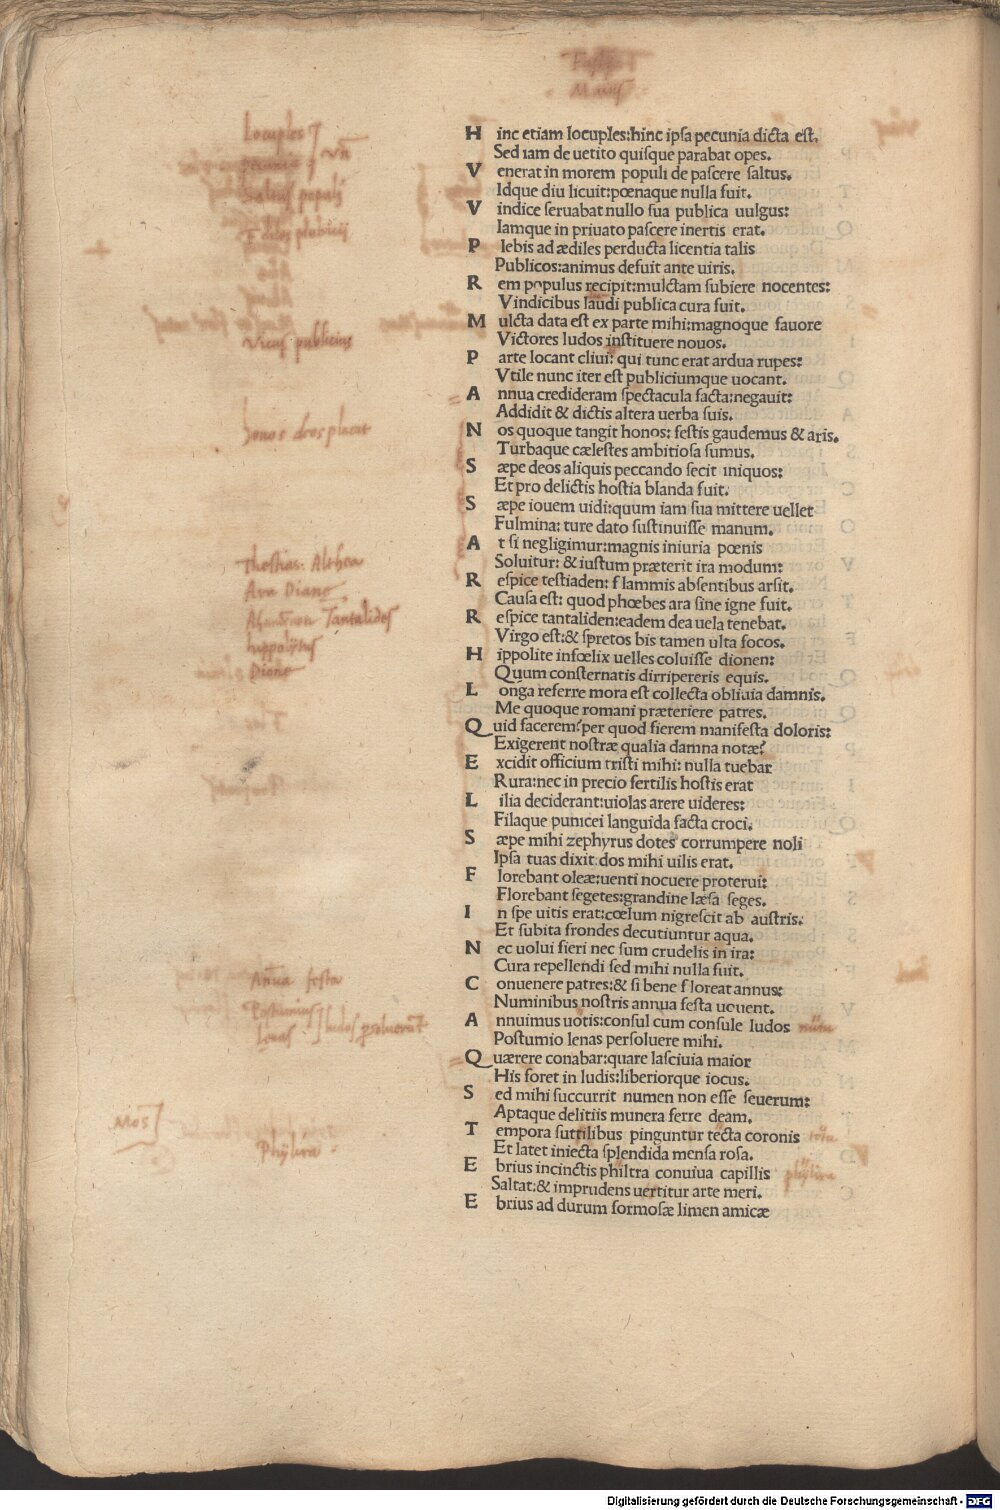 Maius
Locuples
Hinc etiam locuples:hinc ipſa pecunia dicta eſt.
Sed iam de uetito quiſque parabat opes.
Venerat in morem populi de paſcere ſaltus.
Idque diu licuit:pœnaque nulla fuit.
Vindice ſeruabat nullo ſua publica uulgus:
Iamque in priuato paſcere inertis erat.
Plebis ad ædiles perducta licentia talis
Publicos:animus defuit ante uiris.
Rem populus recipit:mulctam ſubiere nocentes:
Vindicibus laudi publica cura fuit.
Mulcta data eſt ex parte mihi:magnoque fauore
Vicus publicius
Victores ludos inſtituere nouos.
Parte locant cliui: qui tunc erat ardua rupes:
Vtile nunc iter eſt publiciumque uocant.
Annua credideram ſpectacula facta:negauit:
Addidit & dictis altera uerba ſuis.
Nos quoque tangit honos: feſtis gaudemus & aris.
Turbaque cæleſtes ambitioſa ſumus.
Sæpe deos aliquis peccando fecit iniquos:
Et pro delictis hoſtia blanda fuit.
Sæpe iouem uidi:quum iam ſua mittere uellet
Fulmina: ture dato ſuſtinuiſſe manum.
At ſi negligimur:magnis iniuria pœnis
Soluitur: & iuſtum præterit ira modum:
Thestias: Althea
Reſpice teſtiaden: flammis abſentibus arſit.
Ara Diane
Cauſa eſt: quod phœbes ara ſine igne fuit.
Tantalides
Reſpice tantaliden:eadem dea uela tenebat.
Virgo eſt:& ſpretos bis tamen ulta focos.
hippolytus
Hippolite infœlix uelles coluiſſe dionen:
Dione
Quum conſternatis dirripereris equis.
Longa referre mora eſt collecta obliuia damnis.
Me quoque romani præteriere patres.
Quid facerem?per quod fierem manifeſta doloris:
Exigerent noſtræ qualia damna notæ?
Excidit officium triſti mihi: nulla tuebar
Rura:nec in precio fertilis hoſtis erat
Lilia deciderant:uiolas arere uideres:
Filaque punicei languida facta croci.
Sæpe mihi zephyrus dotes corrumpere noli
Ipſa tuas dixit:dos mihi uilis erat.
Florebant oleæ:uenti nocuere proterui:
Florebant ſegetes:grandine læſa ſeges.
In ſpe uitis erat:cœlum nigreſcit ab auſtris:
Et ſubita frondes decutiuntur aqua.
Nec uolui fieri nec ſum crudelis in ira:
Cura repellendi ſed mihi nulla fuit.
Annua festa
Conuenere patres:& ſi bene floreat annus:
Numinibus noſtris annua feſta uouent.
Postumius
Annuimus uotis:conſul cum conſule ludos
Poſtumio lenas perſoluere mihi.
Quærere conabar:quare laſciuia maior
His foret in ludis:liberiorque iocus.
Sed mihi ſuccurrit numen non eſſe ſeuerum:
Aptaque delitiis munera ferre deam.
Tempora ſuttilibus pinguntur tecta coronis
Et latet iniecta ſplendida menſa roſa.
Phylira
Ebrius incinctis philtra conuiua capillis phylira
Saltat:& imprudens uertitur arte meri.
Ebrius ad durum formoſæ limen amicæ
Digitalisierung gefördert durch die Deutsche Forschungsgemeinschaft - DFG